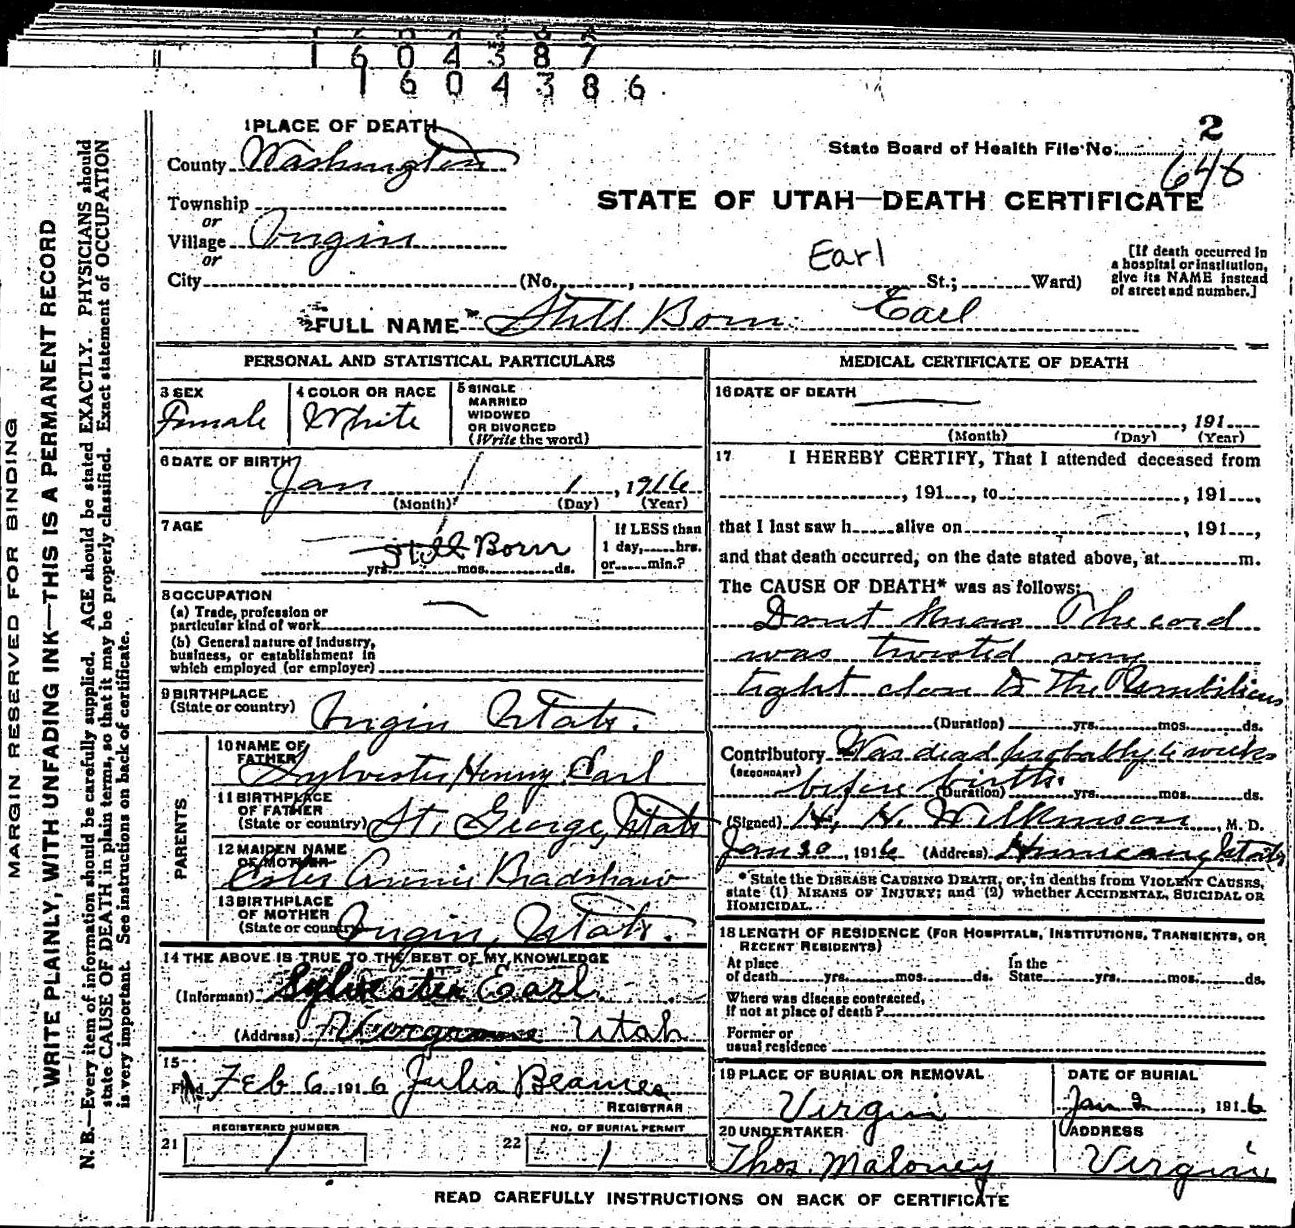 1 6 0 4 3 8 7
1 6 0 4 3 8 6
MARGIN RESERVED FOR BINDING
WRITE PLAINLY, WITH UNFADING INK—THIS IS A PERMANENT RECORD
N. B.—Every item of information should be carefully supplied. AGE should be stated EXACTLY. PHYSICIANS should
state CAUSE OF DEATH in plain terms, so that it may be properly classified. Exact statement of OCCUPATION
is very important. See instructions on back of certificate.
1 PLACE OF DEATH
County Washington
Township
or
Village Virgin
or
City (No. , St.; Ward)
2
State Board of Health File No.
648
STATE OF UTAH—DEATH CERTIFICATE
Earl
[If death occurred in
a hospital or institution,
give its NAME instead
of street and number.]
FULL NAME Still Born Earl
PERSONAL AND STATISTICAL PARTICULARS
3 SEX
Female
4 COLOR OR RACE
White
5 SINGLE
MARRIED
WIDOWED
OR DIVORCED
(Write the word)
6 DATE OF BIRTH
Jan 1, 1916
(Month) (Day) (Year)
7 AGE
Still Born
yrs. mos. ds.
If LESS than
1 day, hrs.
or min.?
8 OCCUPATION
(a) Trade, profession or
particular kind of work
(b) General nature of industry,
business, or establishment in
which employed (or employer)
9 BIRTHPLACE
(State or country)
Virgin Utah.
PARENTS
10 NAME OF
FATHER
Sylvester Henry Earl
11 BIRTHPLACE
OF FATHER
(State or country) St. George, Utah
12 MAIDEN NAME
OF MOTHER
Ester Annie Bradshaw
13 BIRTHPLACE
OF MOTHER
(State or country) Virgin, Utah.
14 THE ABOVE IS TRUE TO THE BEST OF MY KNOWLEDGE
(Informant) Sylvester Earl
(Address) Utah
15
Filed Feb 6 1916 Julia
REGISTRAR
21 REGISTERED NUMBER
1
22 NO. OF BURIAL PERMIT
1
MEDICAL CERTIFICATE OF DEATH
16 DATE OF DEATH
, 191
(Month) (Day) (Year)
17 I HEREBY CERTIFY, That I attended deceased from
, 191 , to , 191 ,
that I last saw h alive on , 191 ,
and that death occurred, on the date stated above, at m.
The CAUSE OF DEATH* was as follows:
Dont know The cord
was twisted very
tight close to the Umbilicus
(Duration) yrs. mos. ds.
Contributory Was dead probably weeks
(SECONDARY)
before birth.
(Duration) yrs. mos. ds.
(Signed) H. H. Wilkinson M. D.
Jan 30, 1916 (Address) Hurricane, Utah
* State the DISEASE CAUSING DEATH, or, in deaths from VIOLENT CAUSES,
state (1) MEANS OF INJURY; and (2) whether ACCIDENTAL, SUICIDAL OR
HOMICIDAL.
18 LENGTH OF RESIDENCE (FOR HOSPITALS, INSTITUTIONS, TRANSIENTS, OR
RECENT RESIDENTS)
At place
of death yrs. mos. ds.
In the
State yrs. mos. ds.
Where was disease contracted,
If not at place of death?
Former or
usual residence
19 PLACE OF BURIAL OR REMOVAL
Virgin
DATE OF BURIAL
Jan 2, 1916
20 UNDERTAKER
Thos. Maloney
ADDRESS
Virgin
READ CAREFULLY INSTRUCTIONS ON BACK OF CERTIFICATE